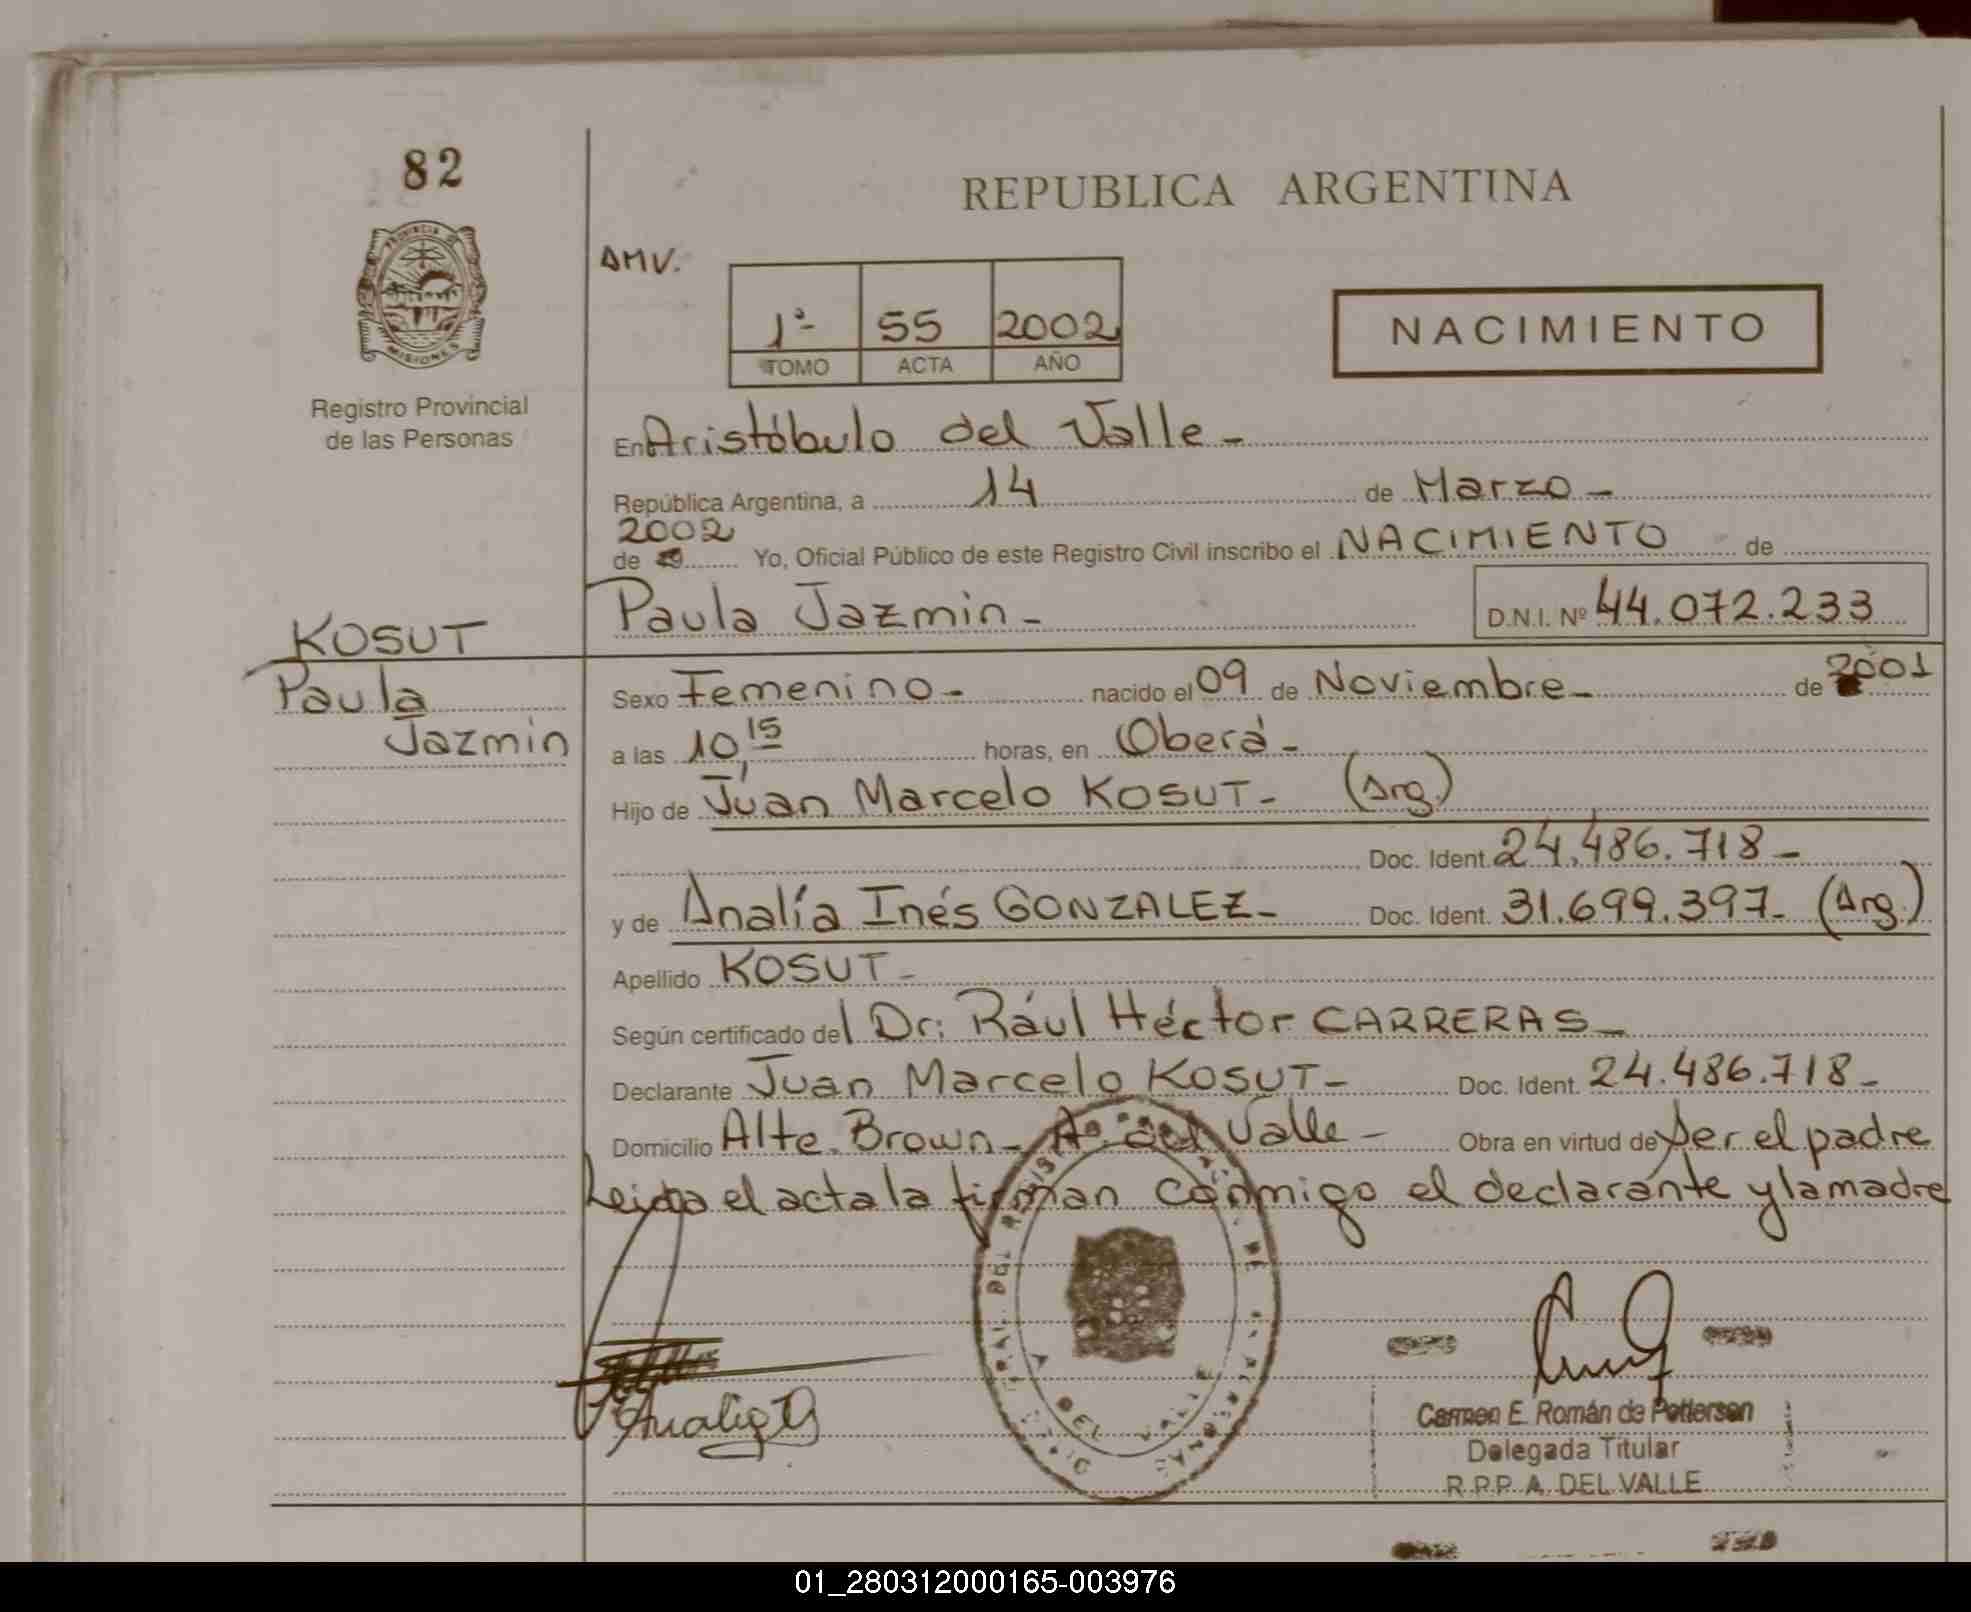 82
REPUBLICA ARGENTINA
PROVINCIA DE
MISIONES
Registro Provincial
de las Personas
AMV.
1º- 55 2002
TOMO ACTA AÑO
NACIMIENTO
En Aristóbulo del Valle -
República Argentina, a 14 de Marzo -
2002
de 19 Yo, Oficial Público de este Registro Civil inscribo el NACIMIENTO de
Paula Jazmin - D.N.I. Nº 44.072.233
KOSUT
Paula
Jazmin
Sexo Femenino - nacido el 09 de Noviembre - de 2001
a las 10,15 horas, en Oberá -
Hijo de Juan Marcelo KOSUT - (Arg.)
Doc. Ident. 24.486.718 -
y de Analía Inés GONZALEZ - Doc. Ident. 31.699.397 - (Arg.)
Apellido KOSUT -
Según certificado del Dr: Rául Héctor CARRERAS -
Declarante Juan Marcelo KOSUT - Doc. Ident. 24.486.718 -
Domicilio Alte. Brown - A. del Valle - Obra en virtud de Ser el padre
Leida el acta la firman conmigo el declarante y la madre
Analia G
Carmen E. Román de Pettersen
Delegada Titular
R.P.P. A. DEL VALLE
01_280312000165-003976